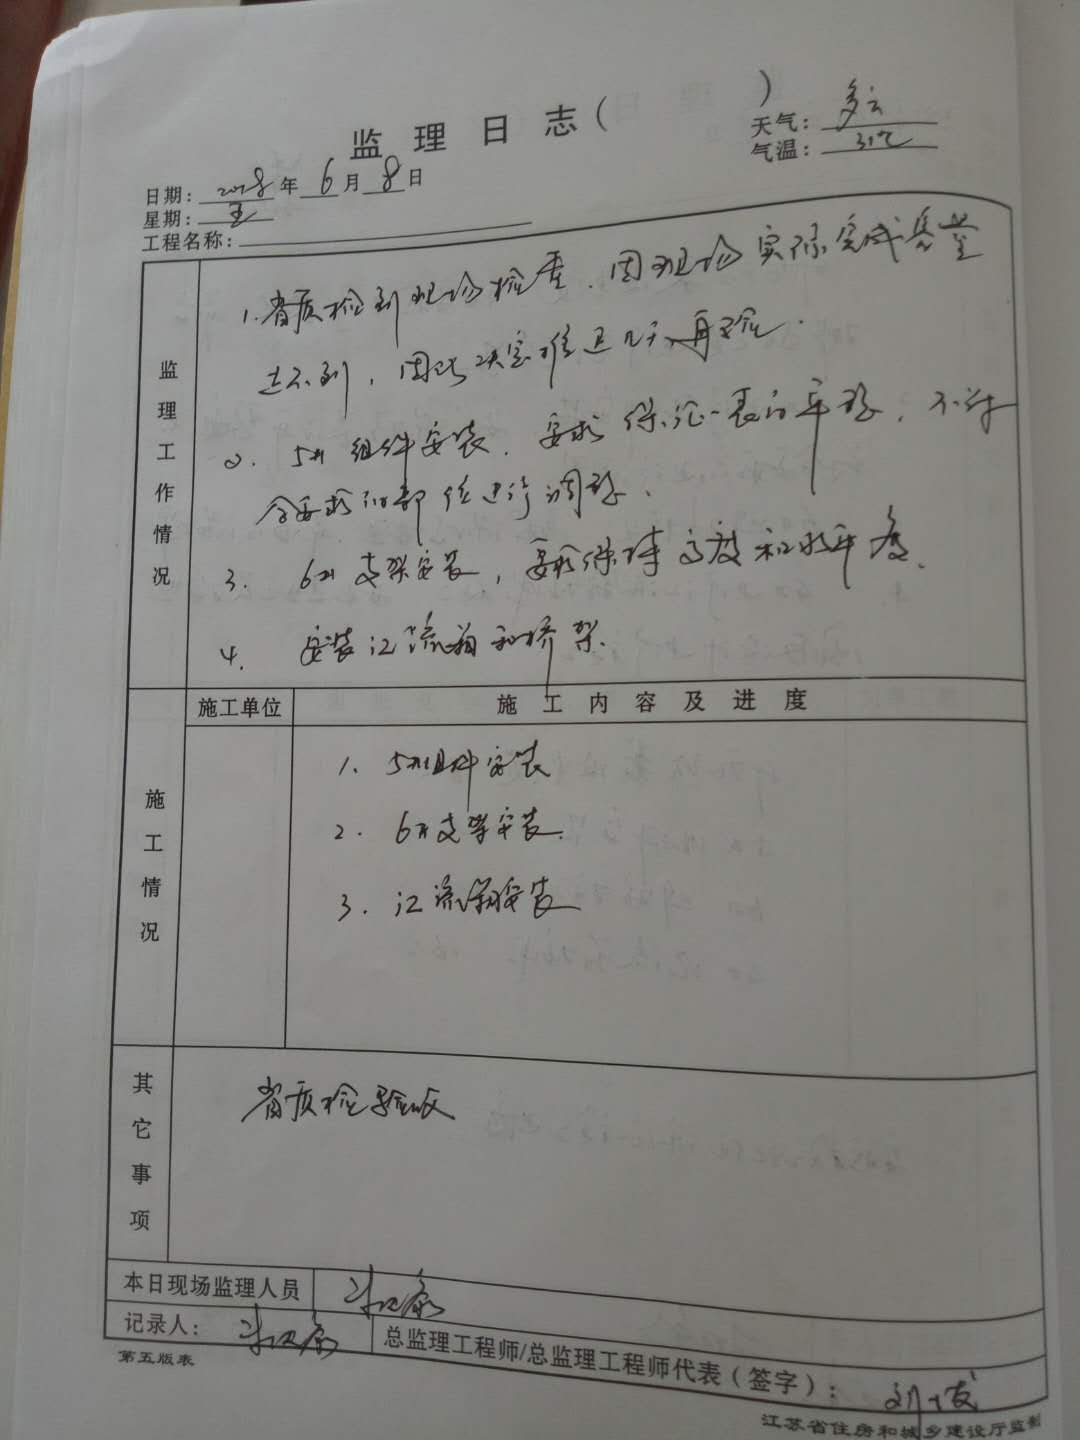 监 理 日 志 ( )
天气: 多云
气温: 31℃
日期: 2018 年 6 月 8 日
星期: 五
工程名称:
监理工作情况
1. 省质检到现场检查,因现场实际完成总量
达不到,因此决定推迟几天再验.
2. 5# 组件安装,要求保证一表的平整,不符
合要求的部位进行调整.
3. 6# 支架安装,要求保持高度和水平度.
4. 安装汇流箱和桥架.
施工情况
施工单位
施 工 内 容 及 进 度
1. 5#组件安装
2. 6#支架安装.
3. 汇流箱安装
其它事项
省质检验收
本日现场监理人员
记录人:
总监理工程师/总监理工程师代表(签字):
第五版表
江苏省住房和城乡建设厅监制